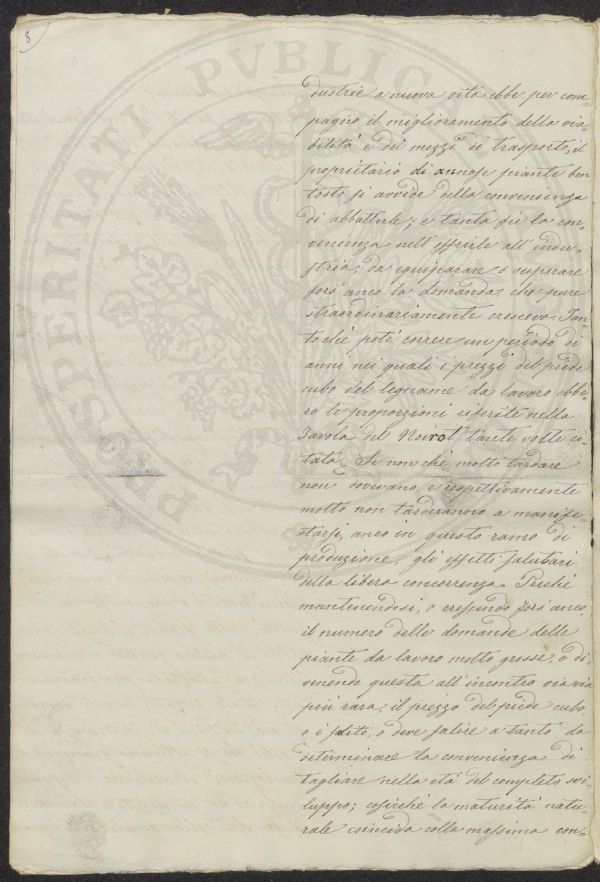 8
PROSPERITATI PVBLICAE
dustrie a nuova vita ebbe per com=
pagno il miglioramento della via=
bilità e dei mezzi di trasporto, il
proprietario di annose piante ben
tosto si avvide della convenienza
di abbatterle; e tanta fu la con=
venienza nell'offrirle all'indu=
stria, da equiparare o superare
fors'anco la domanda, che pure
straordinariamente cresceva. Tan=
to chè potè correre un periodo di
anni nei quali i prezzi del piede
cubo del legname da lavoro ebbe=
ro le proporzioni riferite nella
Tavola del Noirot tante volte ci=
tata. Se non chè molto tardare
non dovevano e rispettivamente
molto non tarderanno a manife=
starsi, anco in questo ramo di
produzione, gli effetti salutari
della libera concorrenza. Perchè
mantenendosi, o crescendo fors'anco,
il numero delle domande delle
piante da lavoro molto grosse, e di=
venendo questa all'incontro via via
più rara, il prezzo del piede cubo
o è salito, o deve salire a tanto da
determinare la convenienza di
tagliare nella età del completo svi=
luppo; cosicchè la maturità natu=
rale coincida colla massima con=